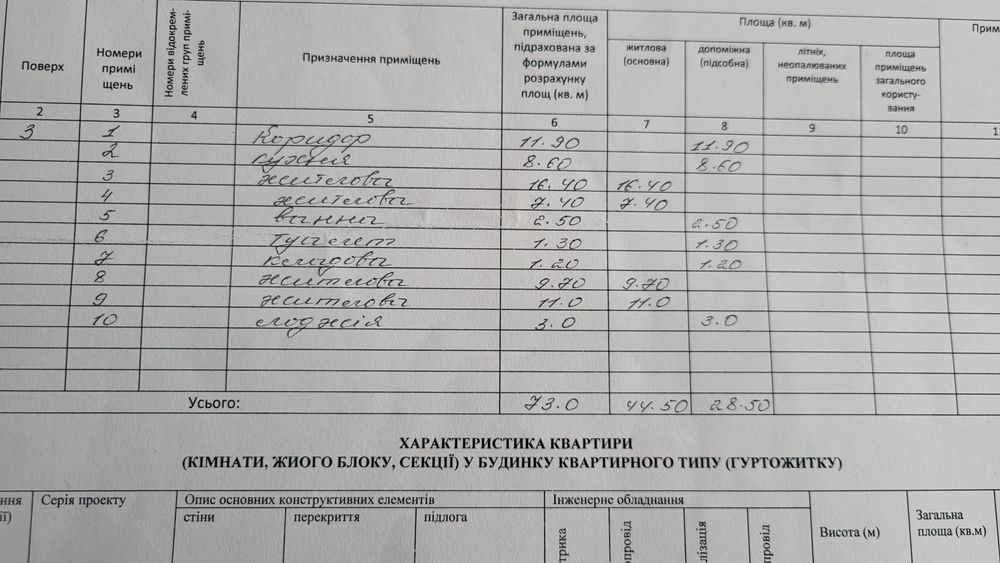 Поверх | Номери примі щень | Номери відокрем- лених груп примі- щень | Призначення приміщень | Загальна площа приміщень, підрахована за формулами розрахунку площ (кв. м) | Площа (кв. м) | Прим
житлова (основна) | допоміжна (підсобна) | літніх, неопалюваних приміщень | площа приміщень загального користу- вання
2 | 3 | 4 | 5 | 6 | 7 | 8 | 9 | 10 | 1
3 | 1 | Коридор | 11.90 | 11.90
2 | кухня | 8.60 | 8.60
3 | житлова | 16.40 | 16.40
4 | житлова | 7.40 | 7.40
5 | ванна | 2.50 | 2.50
6 | туалет | 1.30 | 1.30
7 | кладова | 1.20 | 1.20
8 | житлова | 9.70 | 9.70
9 | житлова | 11.0 | 11.0
10 | лоджія | 3.0 | 3.0
Усього: | 73.0 | 44.50 | 28.50
ХАРАКТЕРИСТИКА КВАРТИРИ
(КІМНАТИ, ЖИОГО БЛОКУ, СЕКЦІЇ) У БУДИНКУ КВАРТИРНОГО ТИПУ (ГУРТОЖИТКУ)
ння ії) | Серія проекту | Опис основних конструктивних елементів | Інженерне обладнання | Висота (м) | Загальна площа (кв.м)
стіни | перекриття | підлога | трика | опровід | лізація | провід